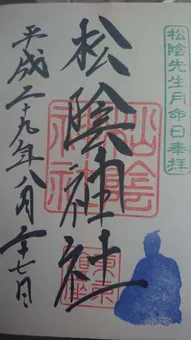 松陰先生月命日奉拝
松陰神社
平成二十九年八月二十七日
松陰神社